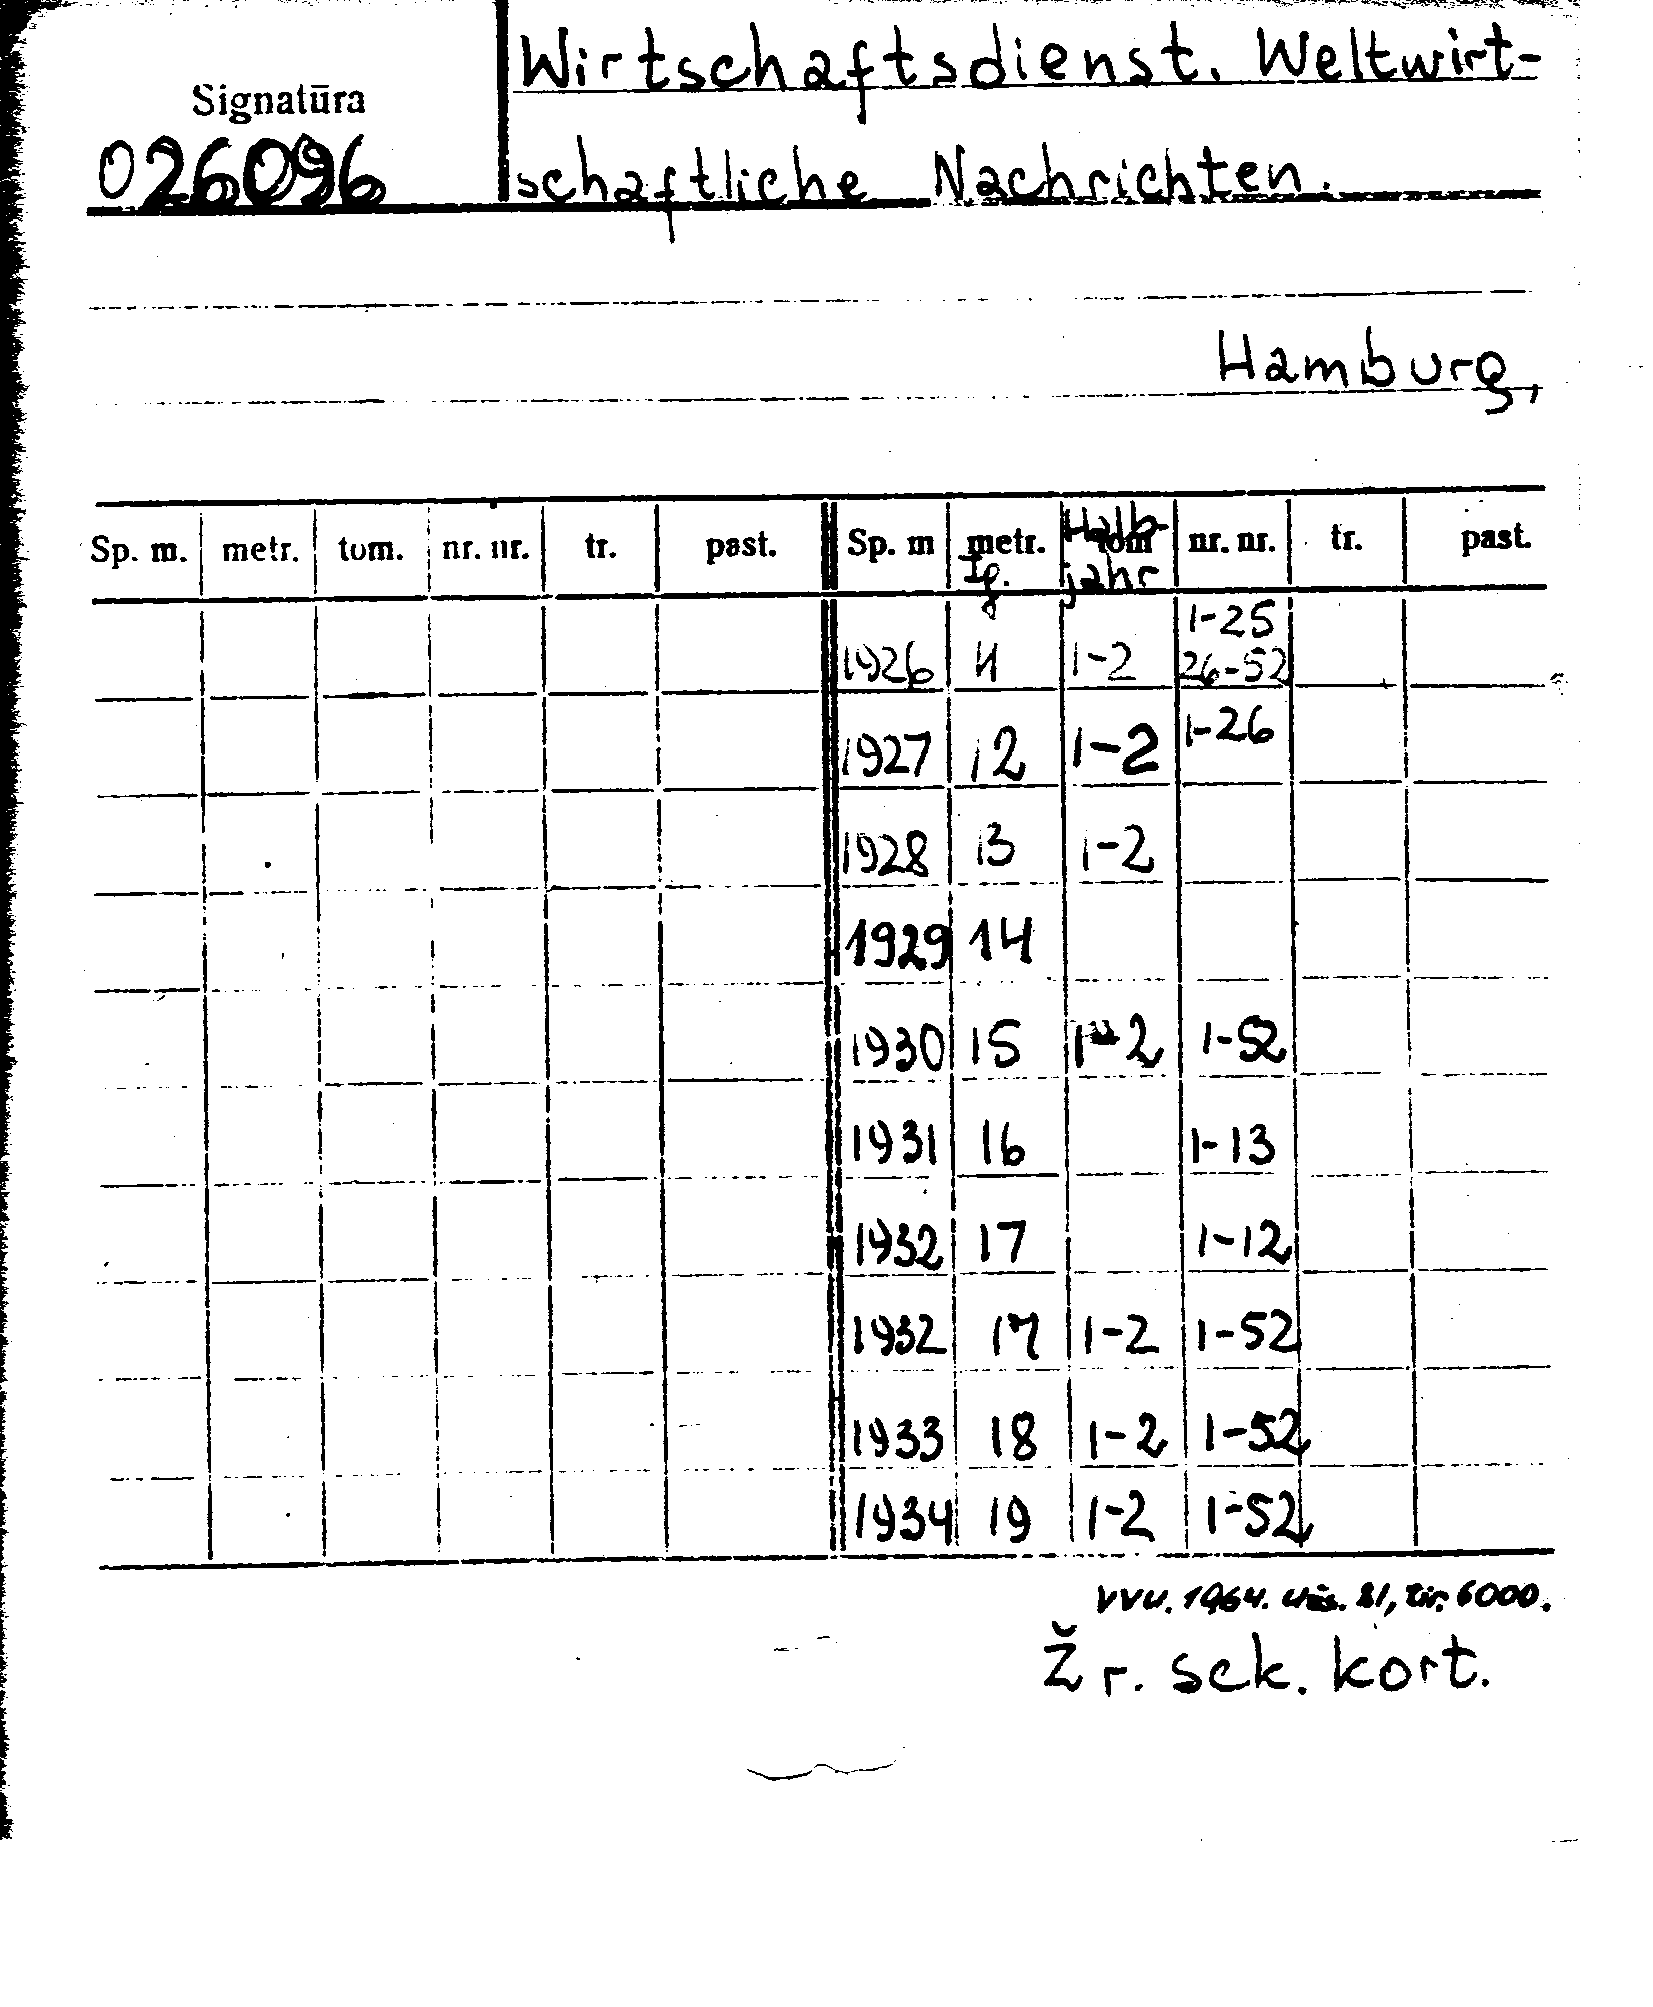 Wirtschaftsdienst. Weltwirt-
Signatūra
026096
schaftliche Nachrichten.
Hamburg,
Sp. m. metr. tom. nr. nr. tr. past. Sp. m metr. tom nr. nr. tr. past.
Jg. Halb-
jahr
1-25
1926 11 1-2 26-52
1927 12 1-2 1-26
1928 13 1-2
1929 14
1930 15 1-2 1-52
1931 16 1-13
1932 17 1-12
1932 17 1-2 1-52
1933 18 1-2 1-52
1934 19 1-2 1-52
VVU. 1964. Užs. 81, tir. 6000.
Žr. sek. kort.